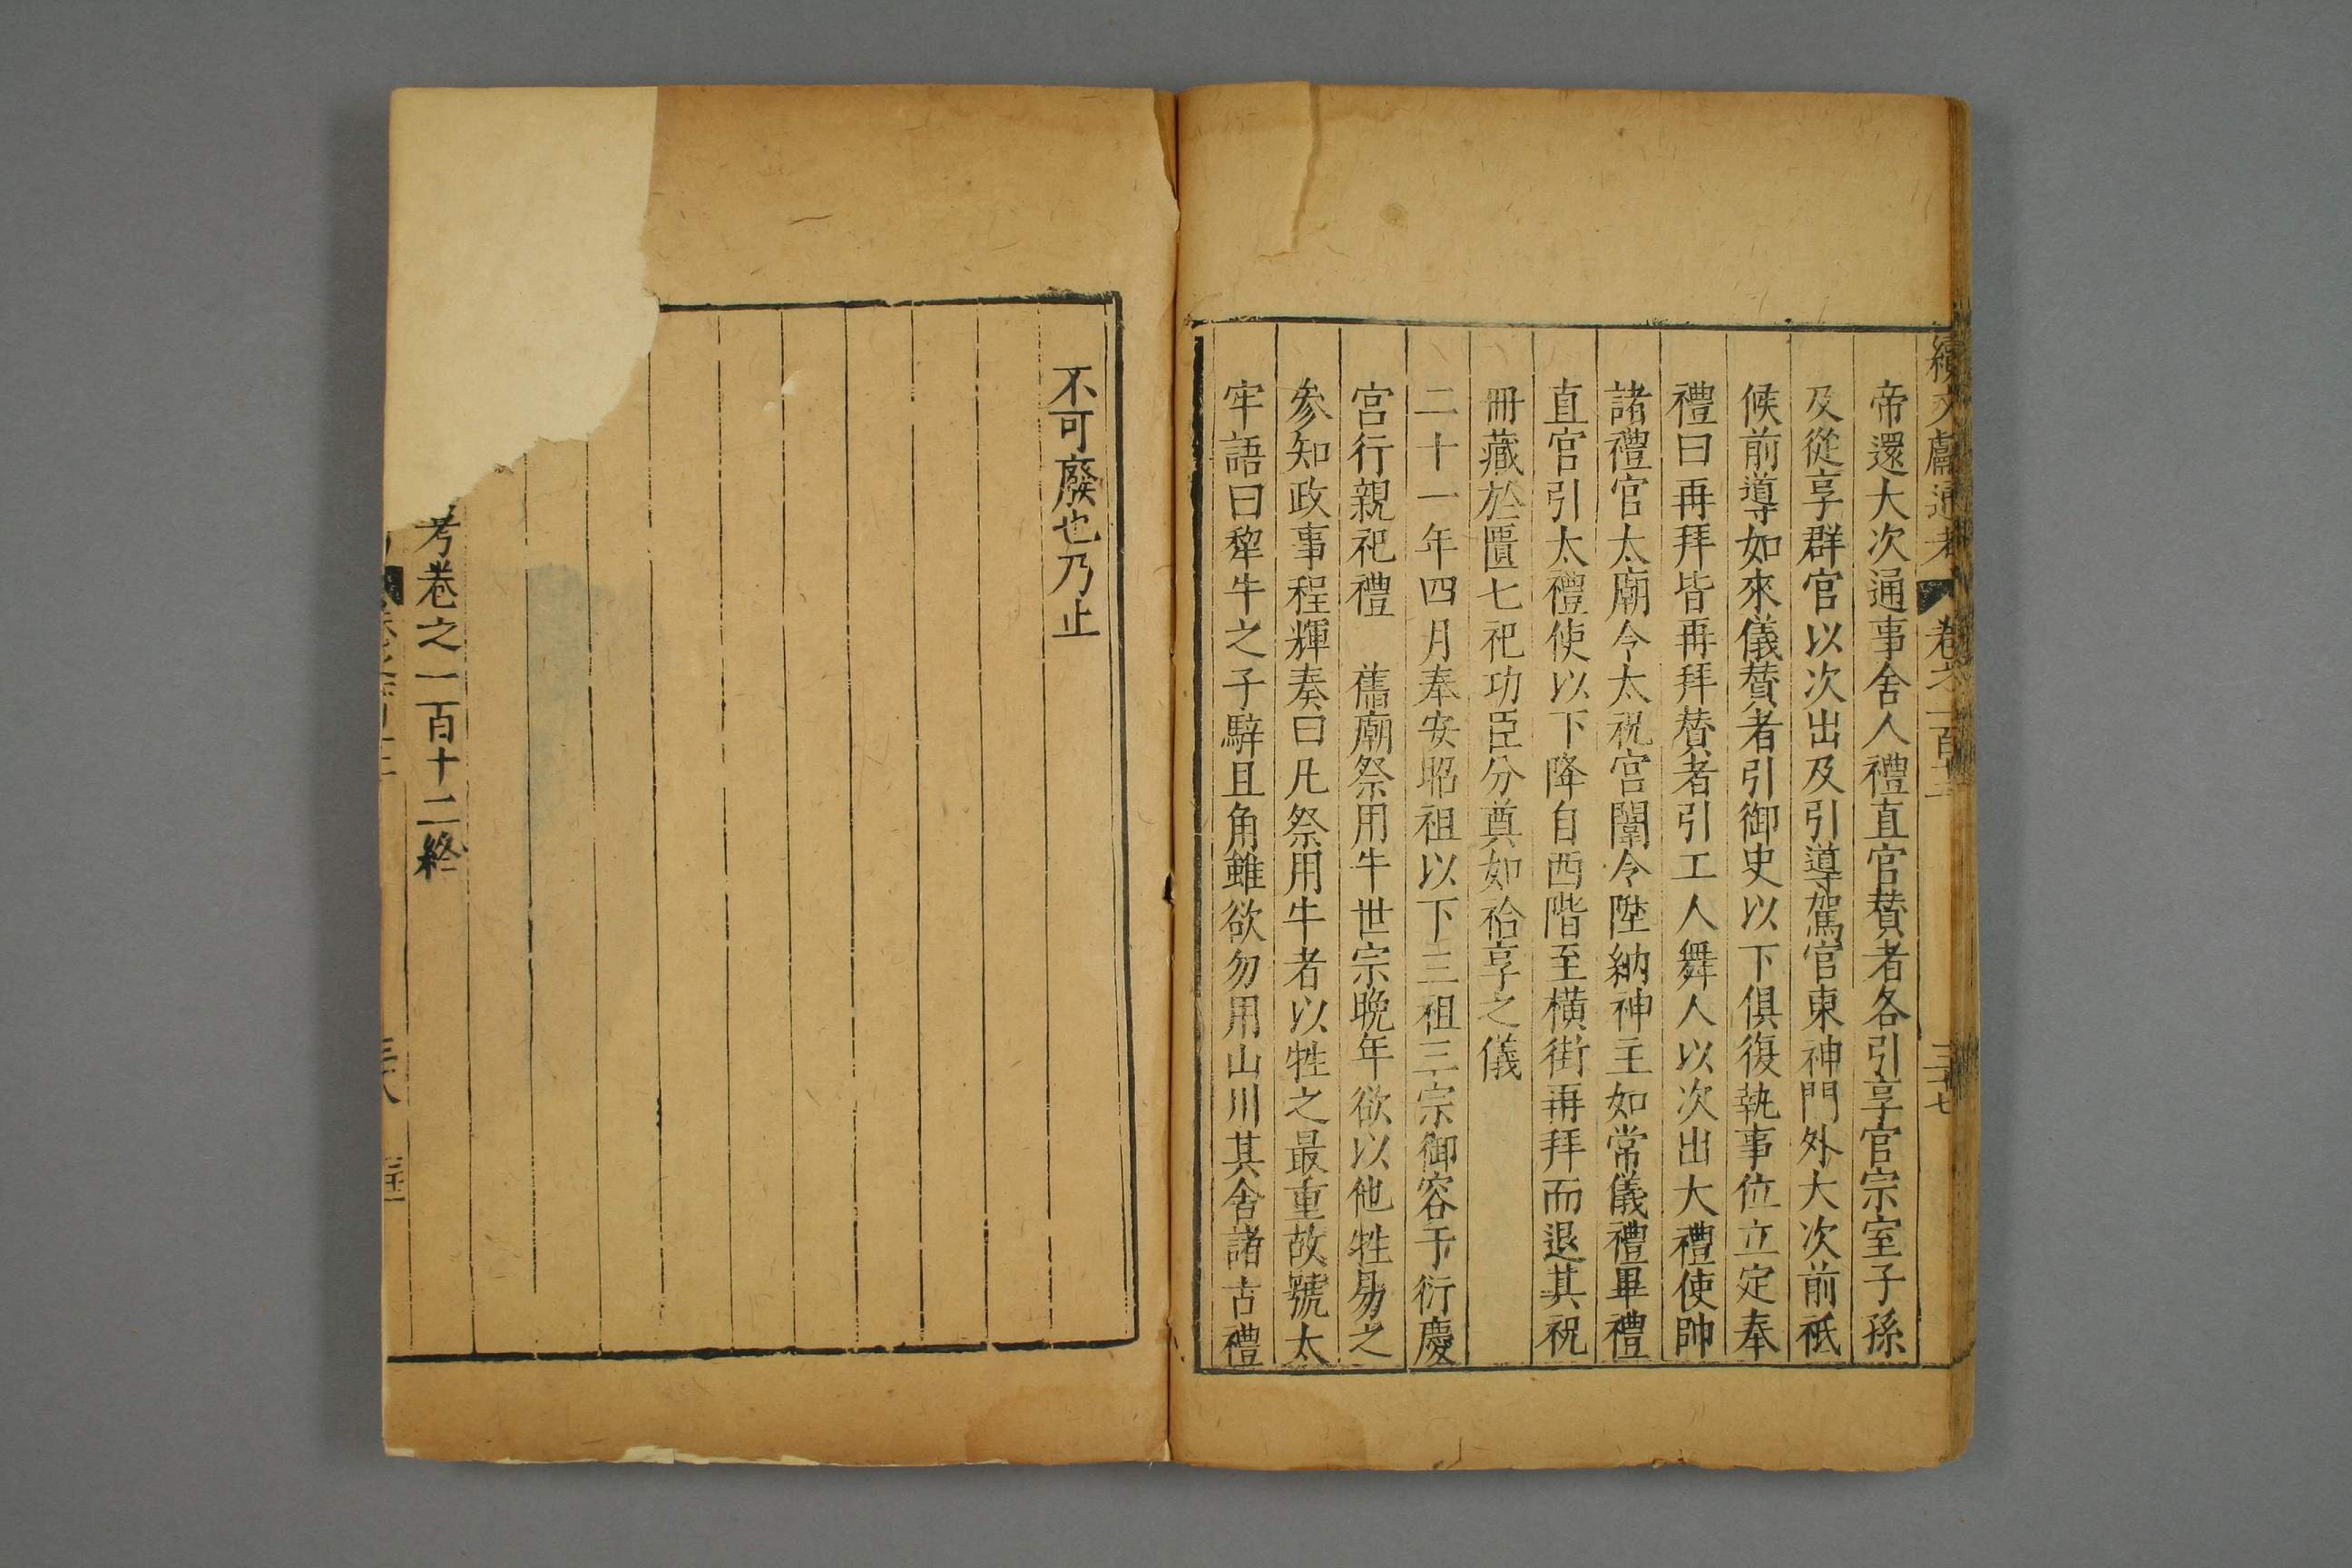 續文獻通考 卷之一百十二 三十七
帝還大次通事舍人禮直官贊者各引享官宗室子孫
及從享群官以次出及引導駕官東神門外大次前祗
候前導如來儀贊者引御史以下俱復執事位立定奉
禮曰再拜皆再拜贊者引工人舞人以次出大禮使帥
諸禮官太廟令太祝宮闈令陞納神主如常儀禮畢禮
直官引太禮使以下降自西階至橫街再拜而退其祝
冊藏於匱七祀功臣分奠如祫享之儀
二十一年四月奉安昭祖以下三祖三宗御容于衍慶
宮行親祀禮　舊廟祭用牛世宗晚年欲以他牲易之
参知政事程輝奏曰凡祭用牛者以牲之最重故號太
牢語曰犂牛之子騂且角雖欲勿用山川其舍諸古禮
不可廢也乃止
考卷之一百十二終